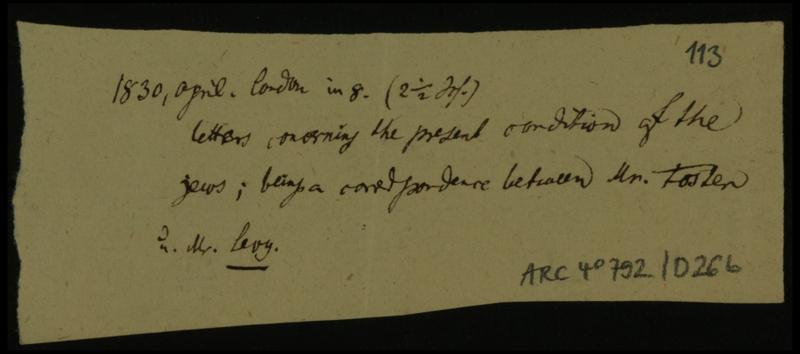 113
1830, april. london in 8. (2½
letters concerning the present condition of the
jews; being a correspondence between Mr. Foster
u. Mr. Levy.
ARC 4° 792 / D26 6